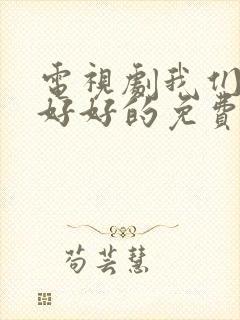 電視劇我们
好好的免費
苟芸慧